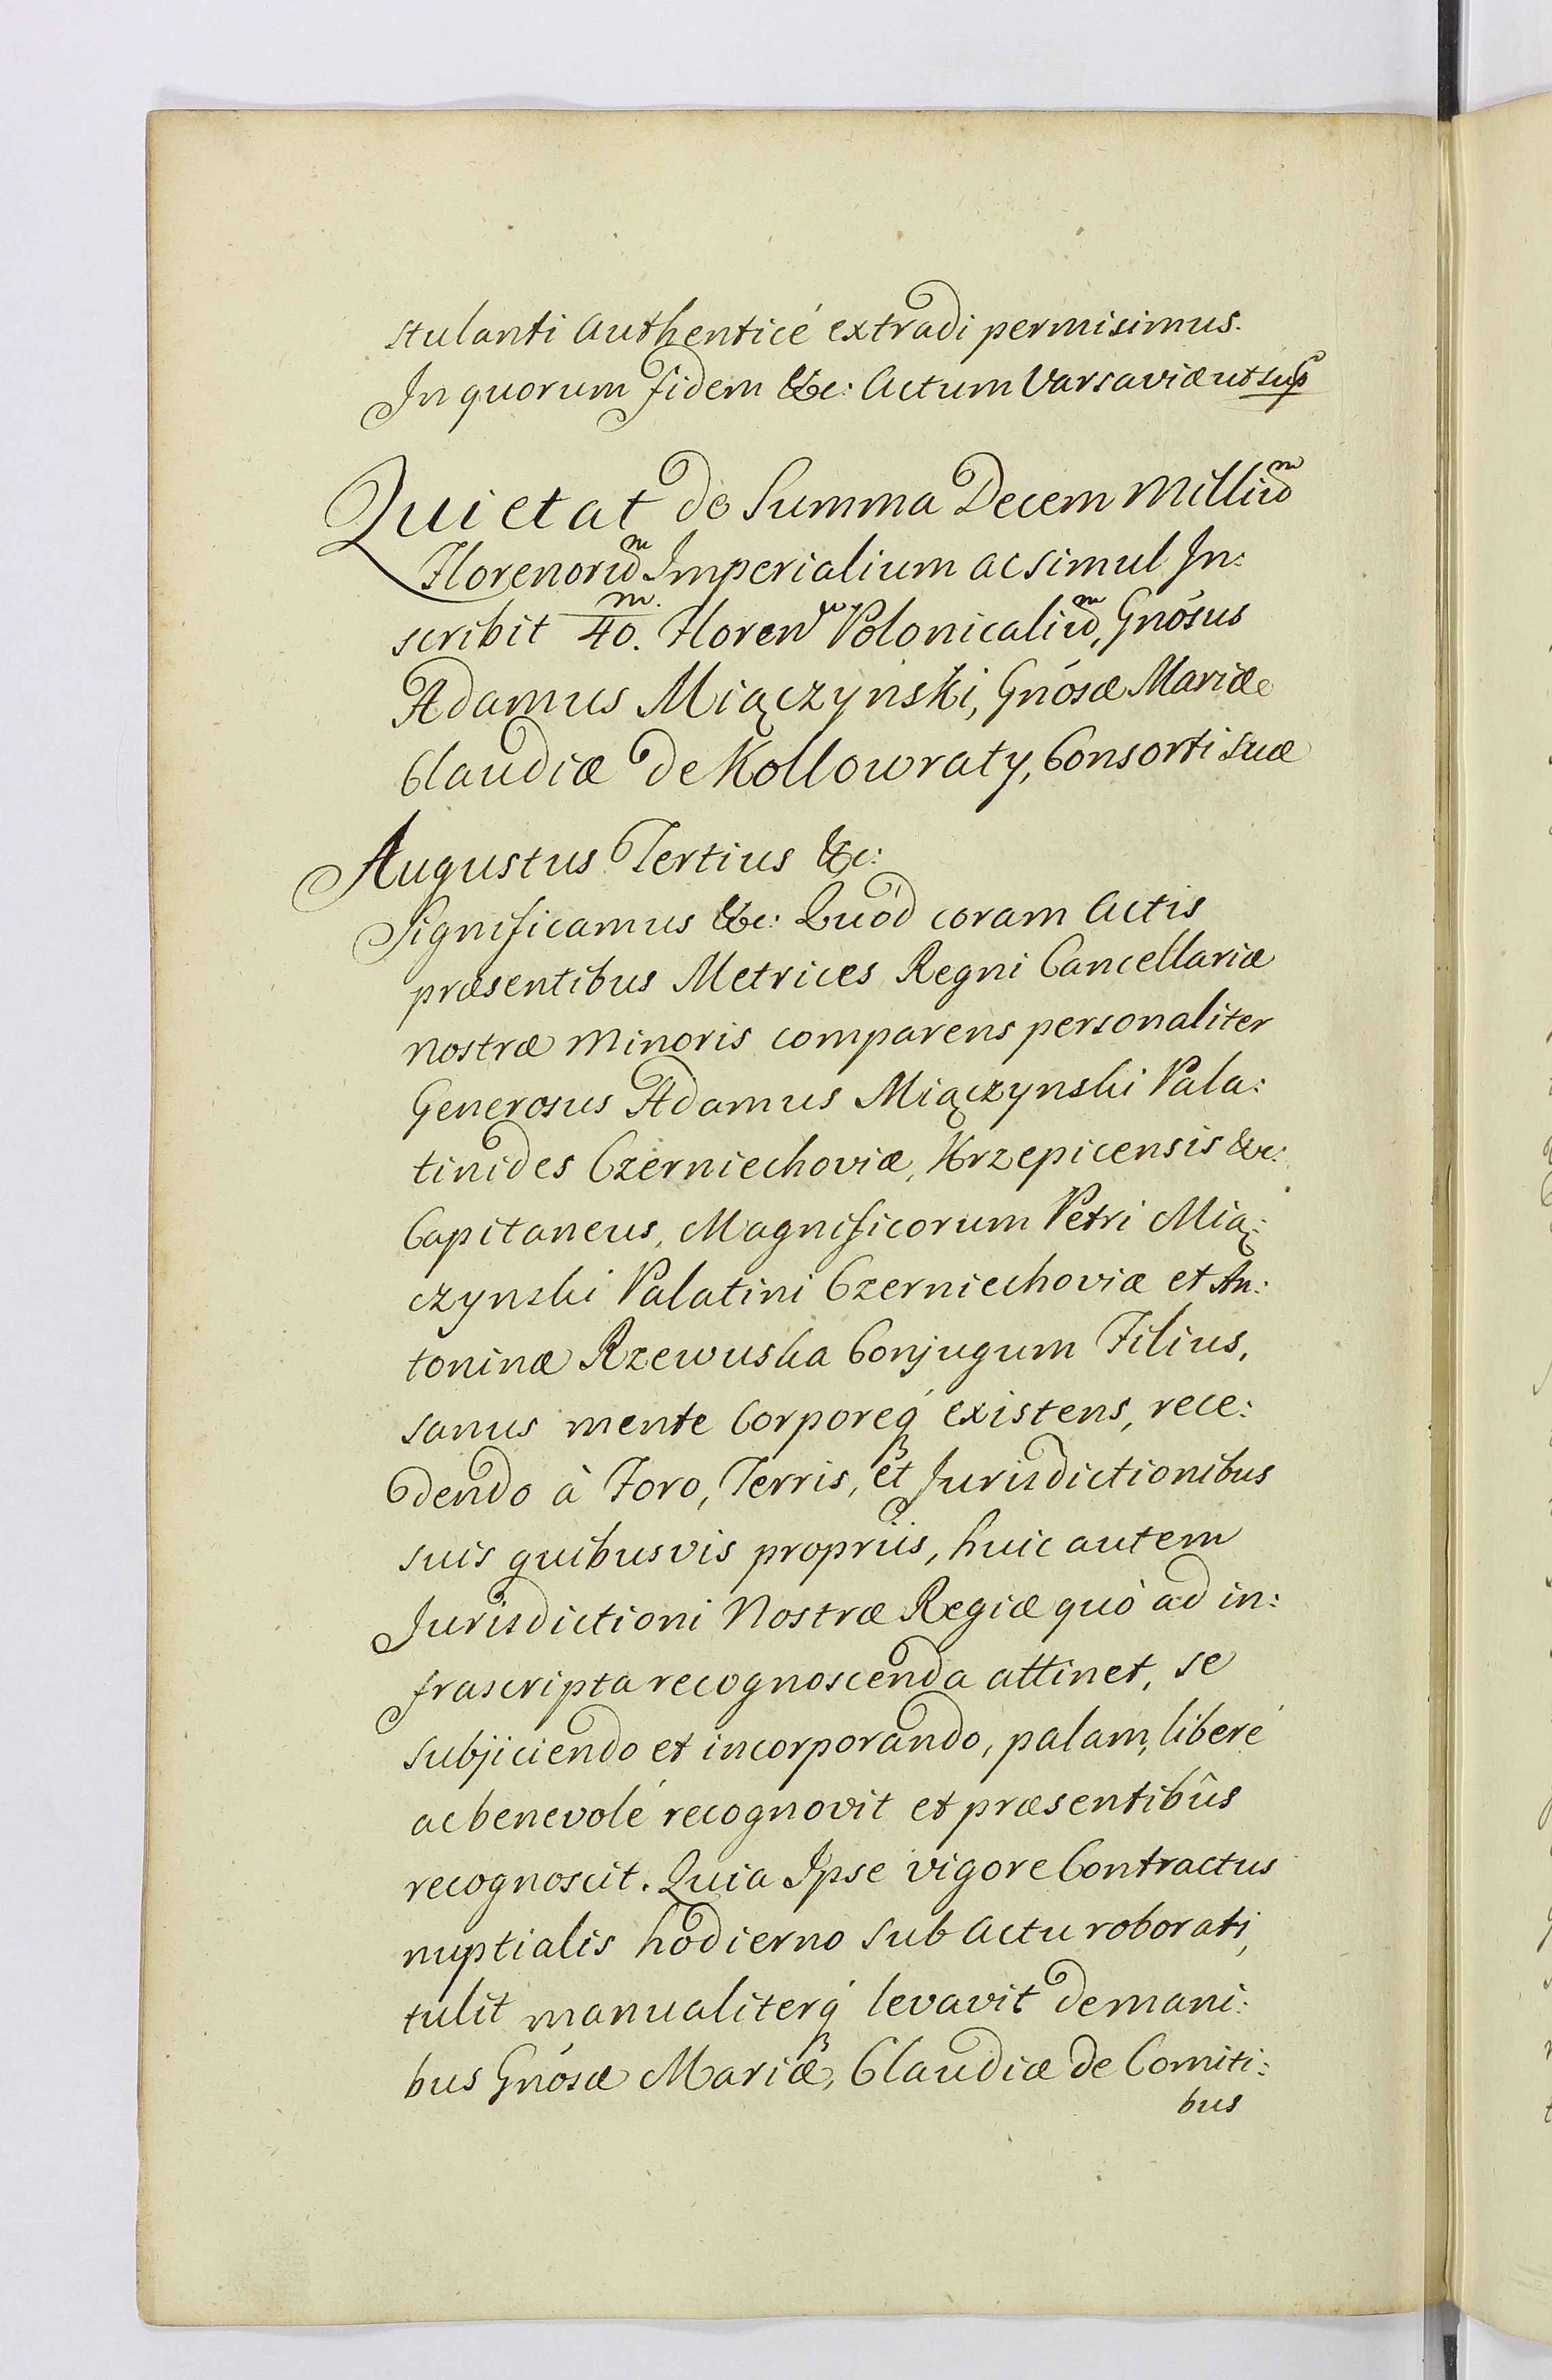 stulanti Authenticé extradi permisimus.
In quorum fidem &c: Actum Varsaviæ ut sup
Quietat de Summa Decem Milliuᵐ
Florenoruᵐ Imperialium ac simul In:
scribit 40.ᵐ Floren Polonicaliuᵐ, Gnósus
Adamus Miączyński, Gnósæ Mariæ
Claudiæ de Kollowraty, Consorti suæ
Augustus Tertius &c:
Significamus &c: Quód coram Actis
præsentibus Metrices Regni Cancellariæ
Nostræ Minoris comparens personaliter
Generosus Adamus Miączynski Pala:
tinides Czerniechoviæ, Krzepicensis &c:
Capitaneus, Magnificorum Petri Mią:
czynski Palatini Czerniechoviæ et An:
toninæ Rzewuska Conjugum Filius,
sanus mente Corporeq́ existens, rece:
dendo à Foro, Terris, et Jurisdictionibus
suis quibusvis propriis, huic autem
Jurisdictioni Nostræ Regiæ quò ad in:
frascripta recognoscenda attinet, se
subjiciendo et incorporando, palam, liberé
ac benevolé recognovit et præsentibûs
recognoscit. Quia Ipse vigore Contractus
nuptialis hodierno sub Actu roborati,
tulit manualiterq́ levavit de mani:
bus Gnósæ Mariæ, Claudiæ de Comiti:
bus